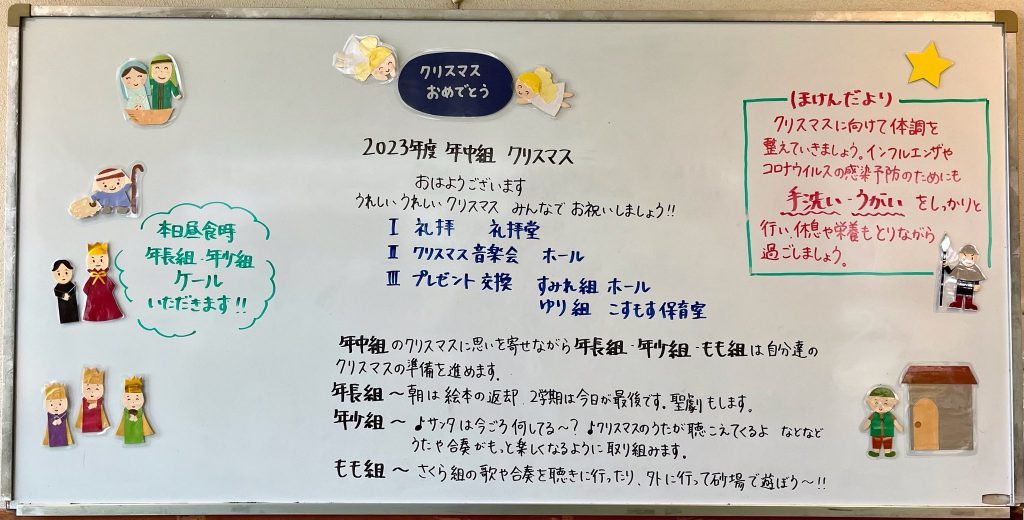 クリスマス
おめでとう
2023年度 年中組 クリスマス
おはようございます
うれしい うれしい クリスマス みんなで お祝いしましょう!!
Ⅰ 礼拝 礼拝堂
Ⅱ クリスマス音楽会 ホール
Ⅲ プレゼント交換 すみれ組 ホール
ゆり組 こすもす保育室
年中組のクリスマスに思いを寄せながら年長組・年少組・もも組は自分達の
クリスマスの準備を進めます。
年長組 〜 朝は絵本の返却 2学期は今日が最後です。聖劇もします。
年少組 〜 ♪サンタは今ごろ何してる〜? ♪クリスマスのうたが聴こえてくるよ などなど
うたや合奏がもっと楽しくなるように取り組みます。
もも組 〜 さくら組の歌や合奏を聴きに行ったり、外に行って砂場で遊ぼう〜!!
本日昼食時
年長組・年少組
ケール
いただきます!!
ほけんだより
クリスマスに向けて体調を
整えていきましょう。インフルエンザや
コロナウイルスの感染予防のためにも
手洗い・うがいをしっかりと
行い、休息や栄養もとりながら
過ごしましょう。